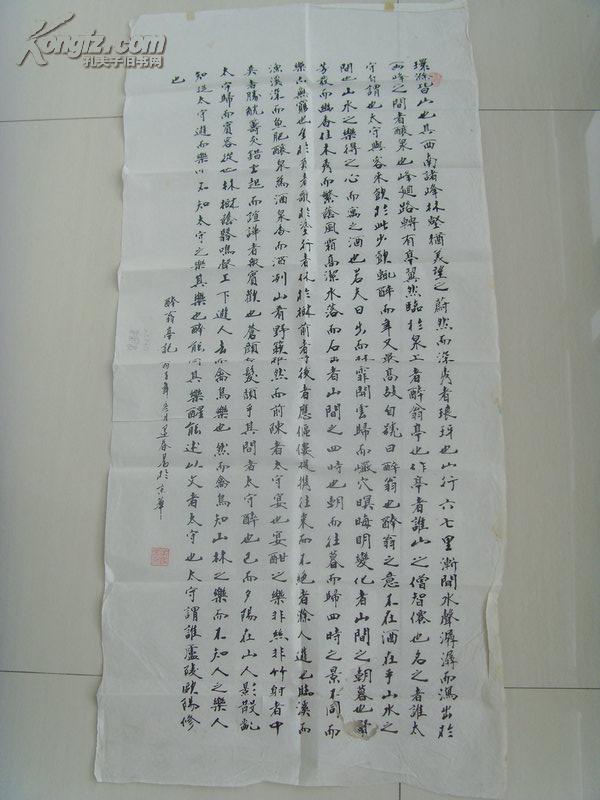 Kongfz.com
孔夫子旧书网
環滁皆山也其西南諸峰林壑猶美望之蔚然而深秀者琅玡也山行六七里漸聞水聲潺潺而瀉出於
两峰之間者釀泉也峰廻路轉有亭翼然臨於泉上者醉翁亭也作亭者誰山之僧智僊也名之者誰太
守自謂也太守與客来飲於此少飲輒醉而年又最高故自號曰醉翁也醉翁之意不在酒在乎山水之
間也山水之樂得之心而寓之酒也若夫日出而林霏開雲歸而巖穴暝晦明變化者山間之朝暮也野
芳發而幽香佳木秀而繁蔭風霜高潔水落而石出者山間之四時也朝而往暮而歸四時之景不同而
樂亦無窮也至於負者歌於塗行者休於樹前者呼後者應傴僂提携往来而不絶者滁人遊也臨溪而
漁溪深而魚肥釀泉為酒泉香而酒冽山肴野蔌雜然而前陳者太守宴也宴酣之樂非絲非竹射者中
奕者勝觥籌交錯坐起而諠譁者衆賓歡也蒼顔白髮頹乎其間者太守醉也已而夕陽在山人影散亂
太守歸而賓客從也林樹蔭翳鳴聲上下遊人去而禽鳥樂也然而禽鳥知山林之樂而不知人之樂人
知從太守遊而樂而不知太守之樂其樂也醉能同其樂醒能述以文者太守也太守謂誰廬陵歐陽修
也
醉翁亭記 春 於京華